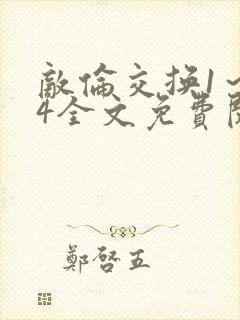 敵倫交換1~
4全文免費閱
鄭啓五